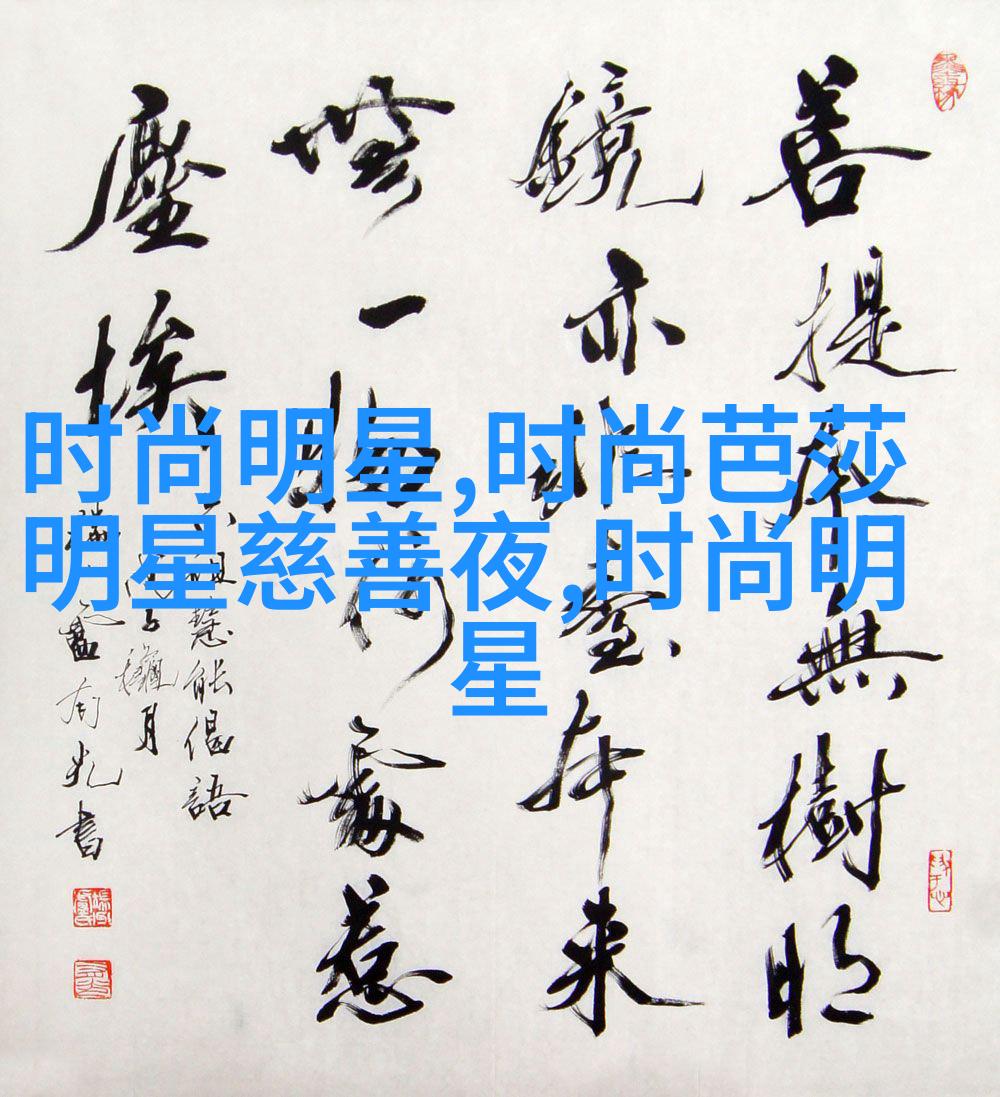 时尚明星,时尚芭莎
明星慈善夜,时尚明
星
菩提原無樹明
鏡亦非臺本來
無一物何處惹
塵埃
六祖慧能偈語
月
書